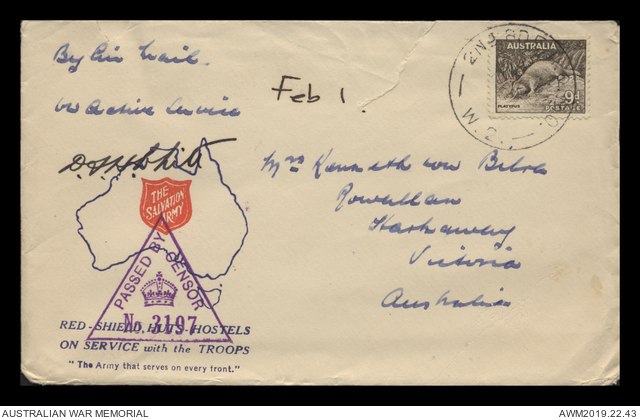 By Air Mail.
On Active Service
Feb 1.
AUSTRALIA
PLATYPUS
9d
POSTAGE
2ND
Mrs Kenneth von Bibra
Rowallan
Victoria
Australia
THE
SALVATION
ARMY
PASSED BY CENSOR
No. 3197
RED-SHIELD HUTS-HOSTELS
ON SERVICE with the TROOPS
"The Army that serves on every front."
AUSTRALIAN WAR MEMORIAL
AWM2019.22.43